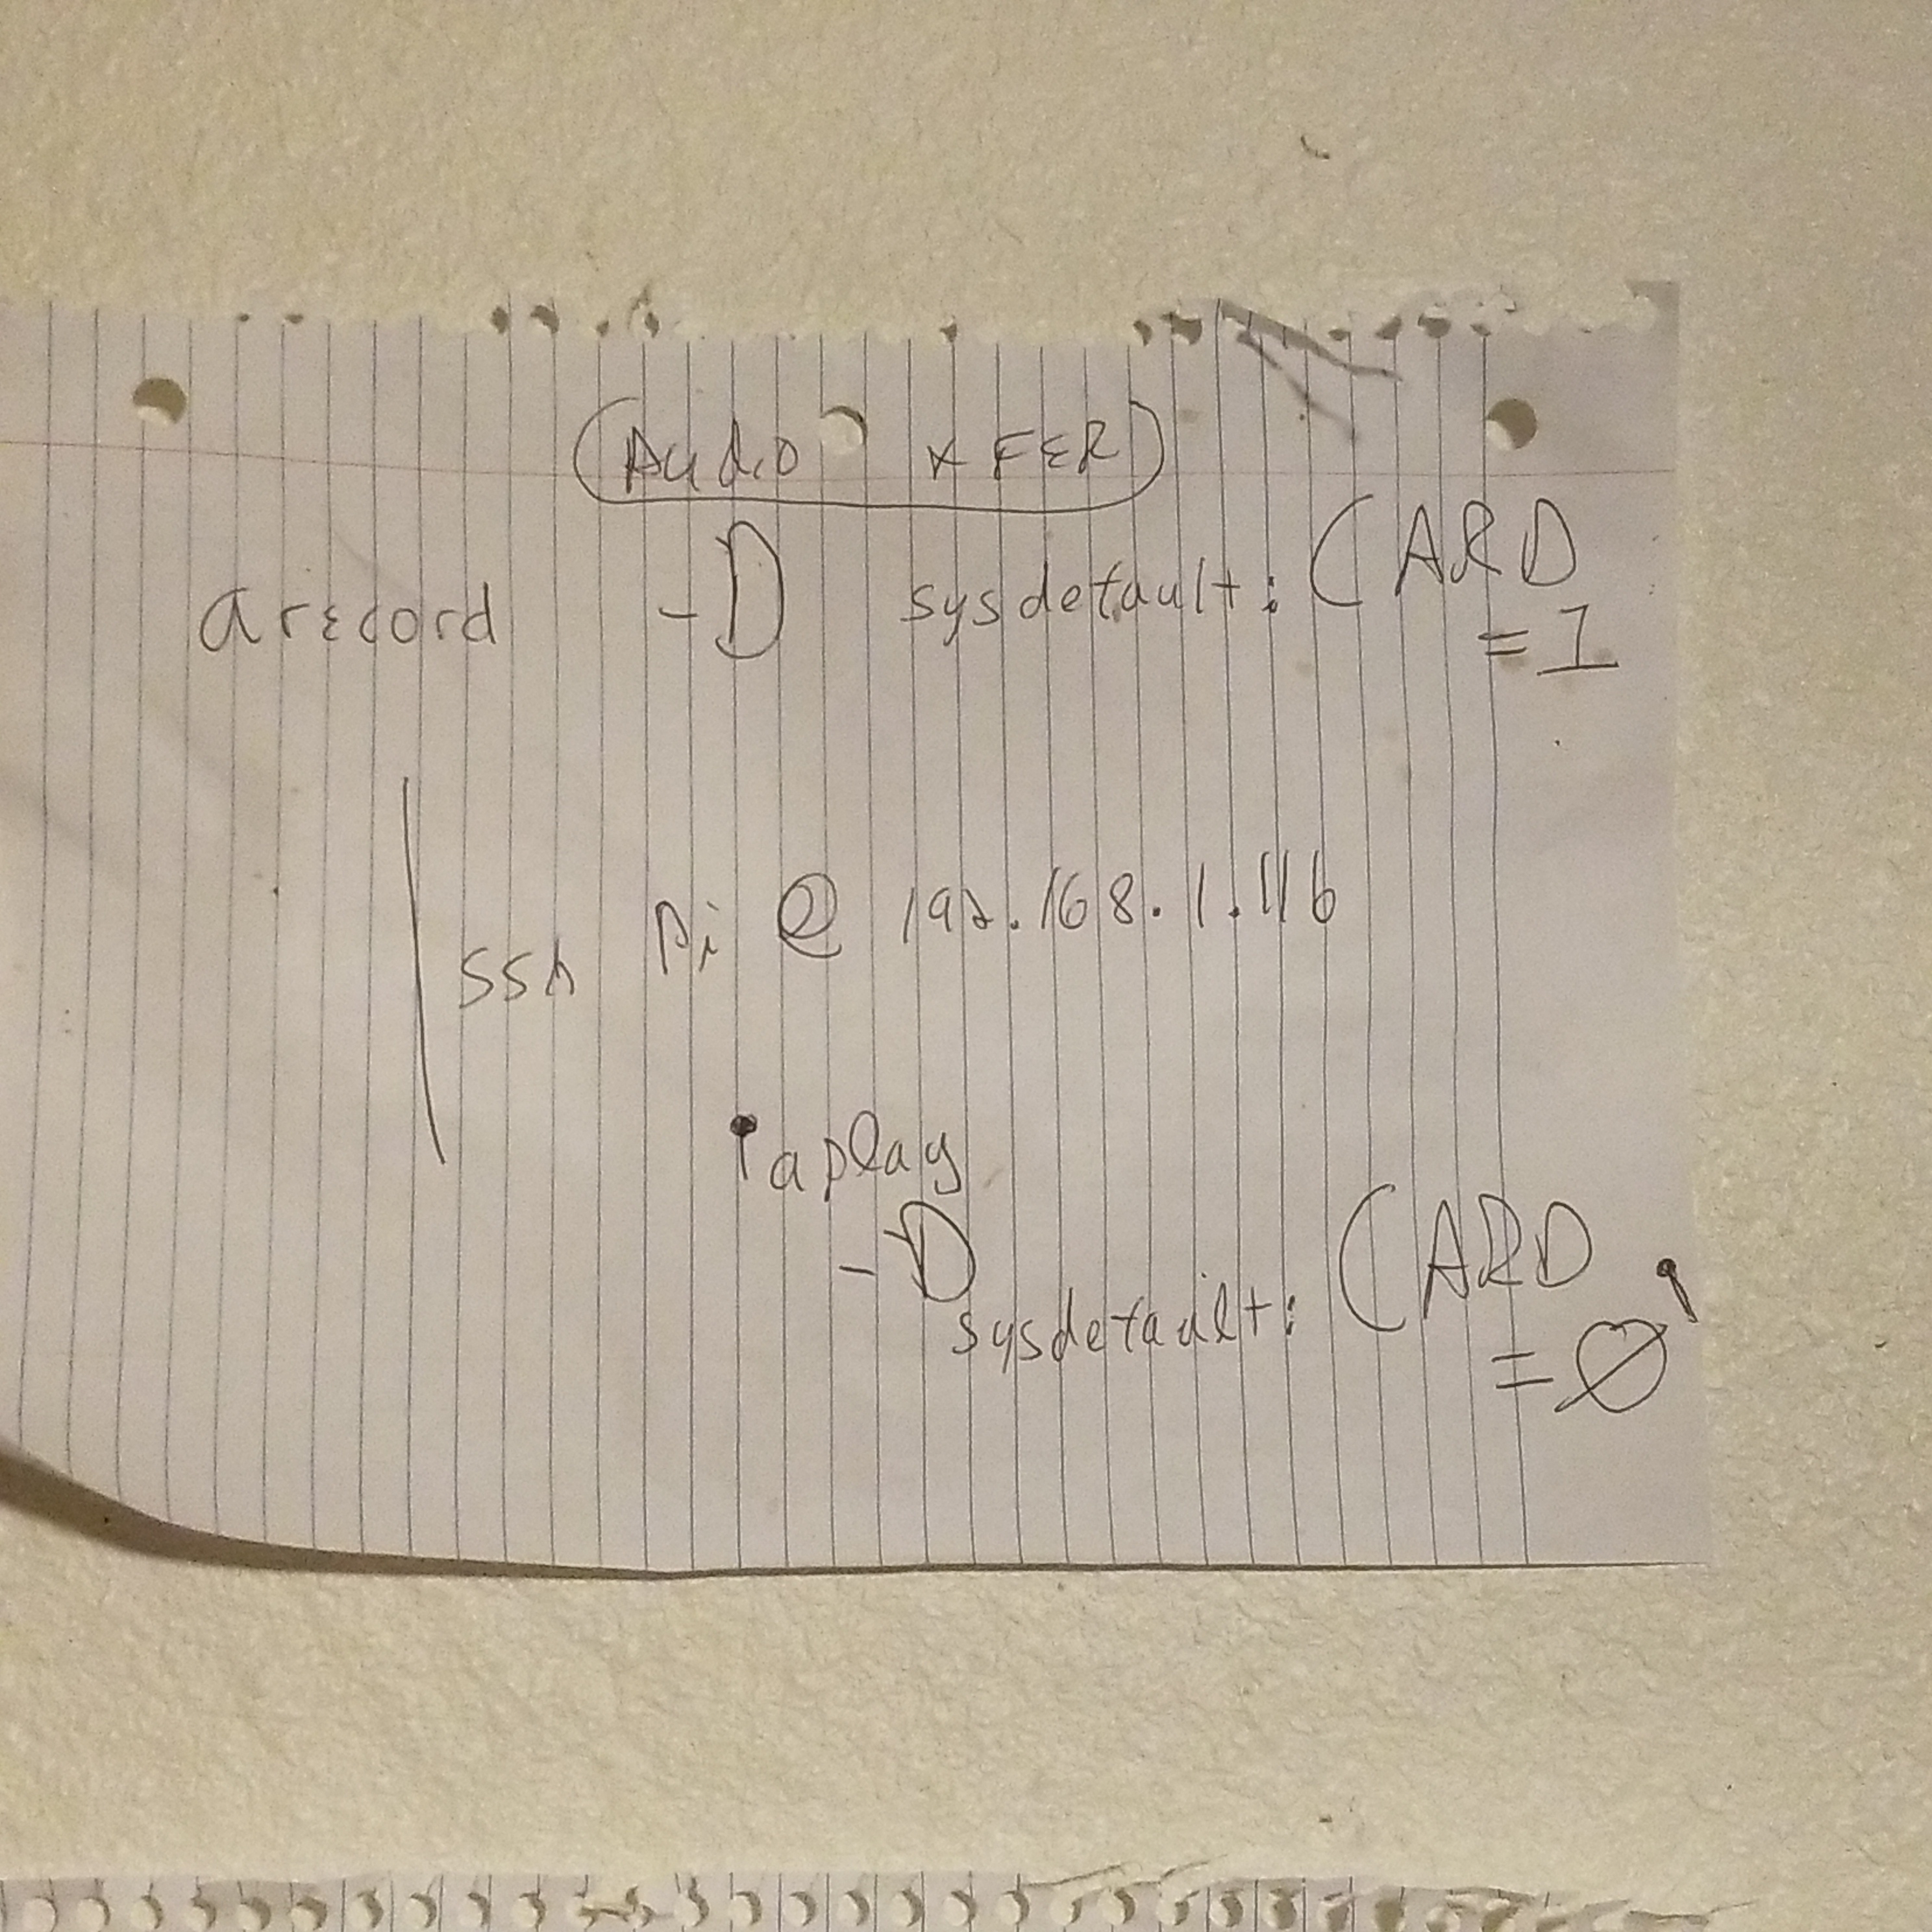 Audio XFER
arecord -D sysdefault:CARD
=1
| ssh Pi @ 192.168.1.116
'aplay
-D
sysdefault:CARD
=0'